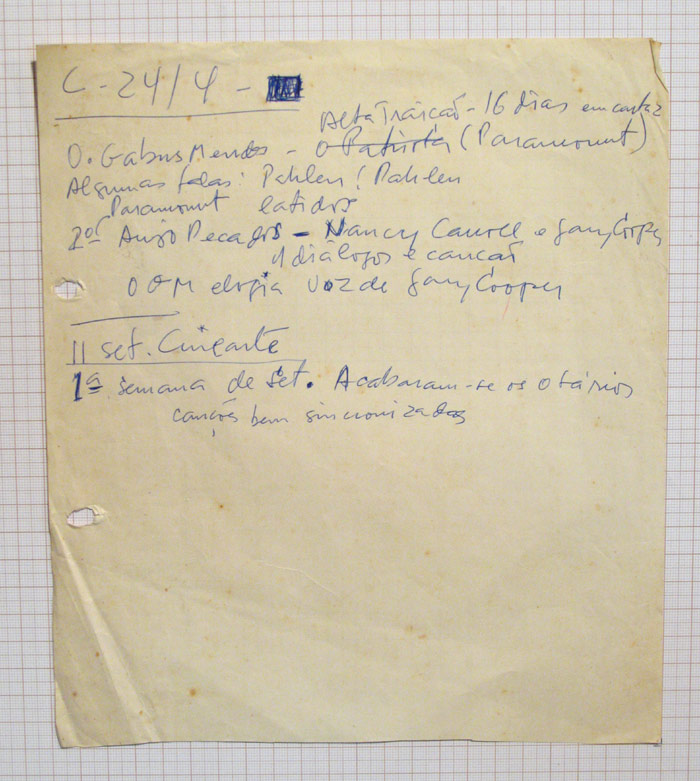 C - 24/4 -
Alta Traição - 16 dias em cartaz
O. Gabus Mendes - O Patriota (Paramount)
Algumas falas: Pahlen! Pahlen
Paramount latidos
2º Anjo Pecador - Nancy Carroll e Gary Cooper
diálogos e canção
O G M elogia voz de Gary Cooper
11 set. Cinearte
1ª semana de set. Acabaram-se os otários
canções bem sincronizadas